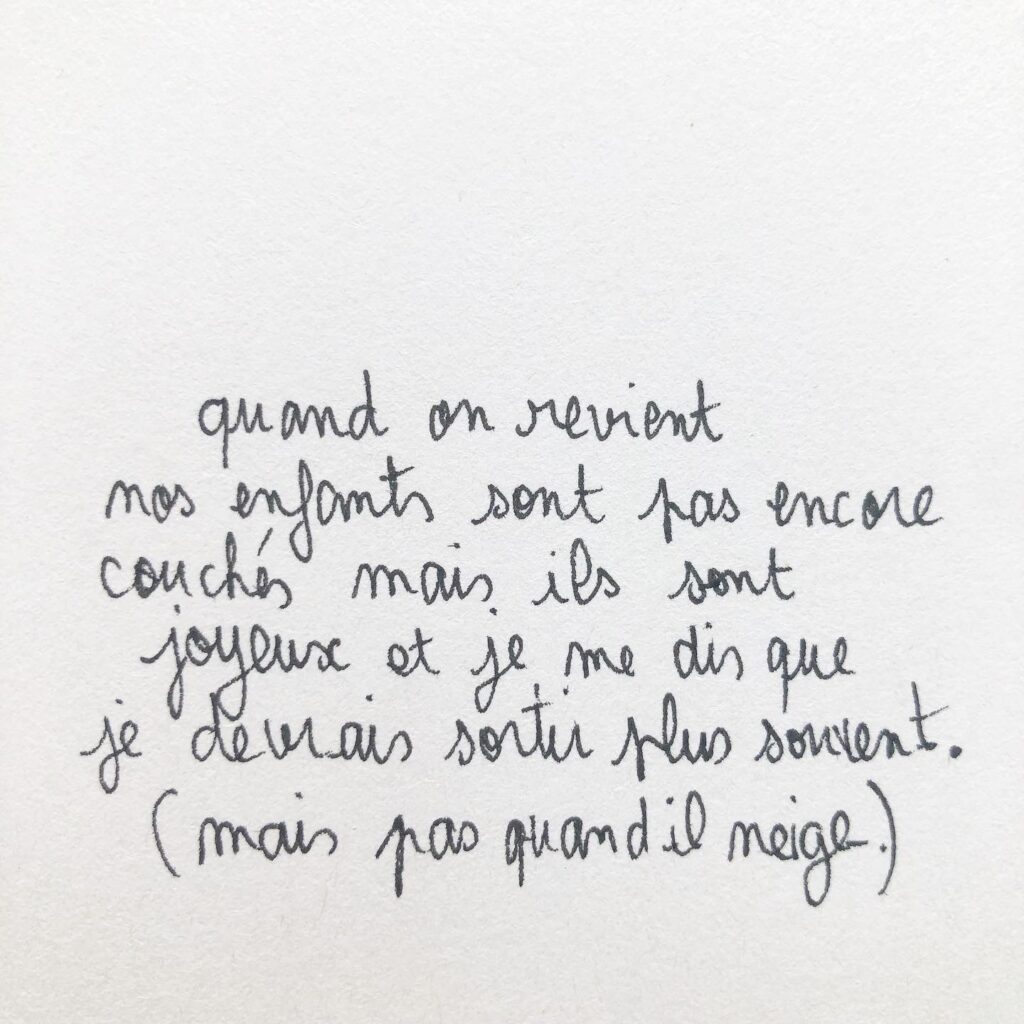 quand on revient
nos enfants sont pas encore
couchés mais ils sont
joyeux et je me dis que
je devrais sortir plus souvent.
(mais pas quand il neige.)